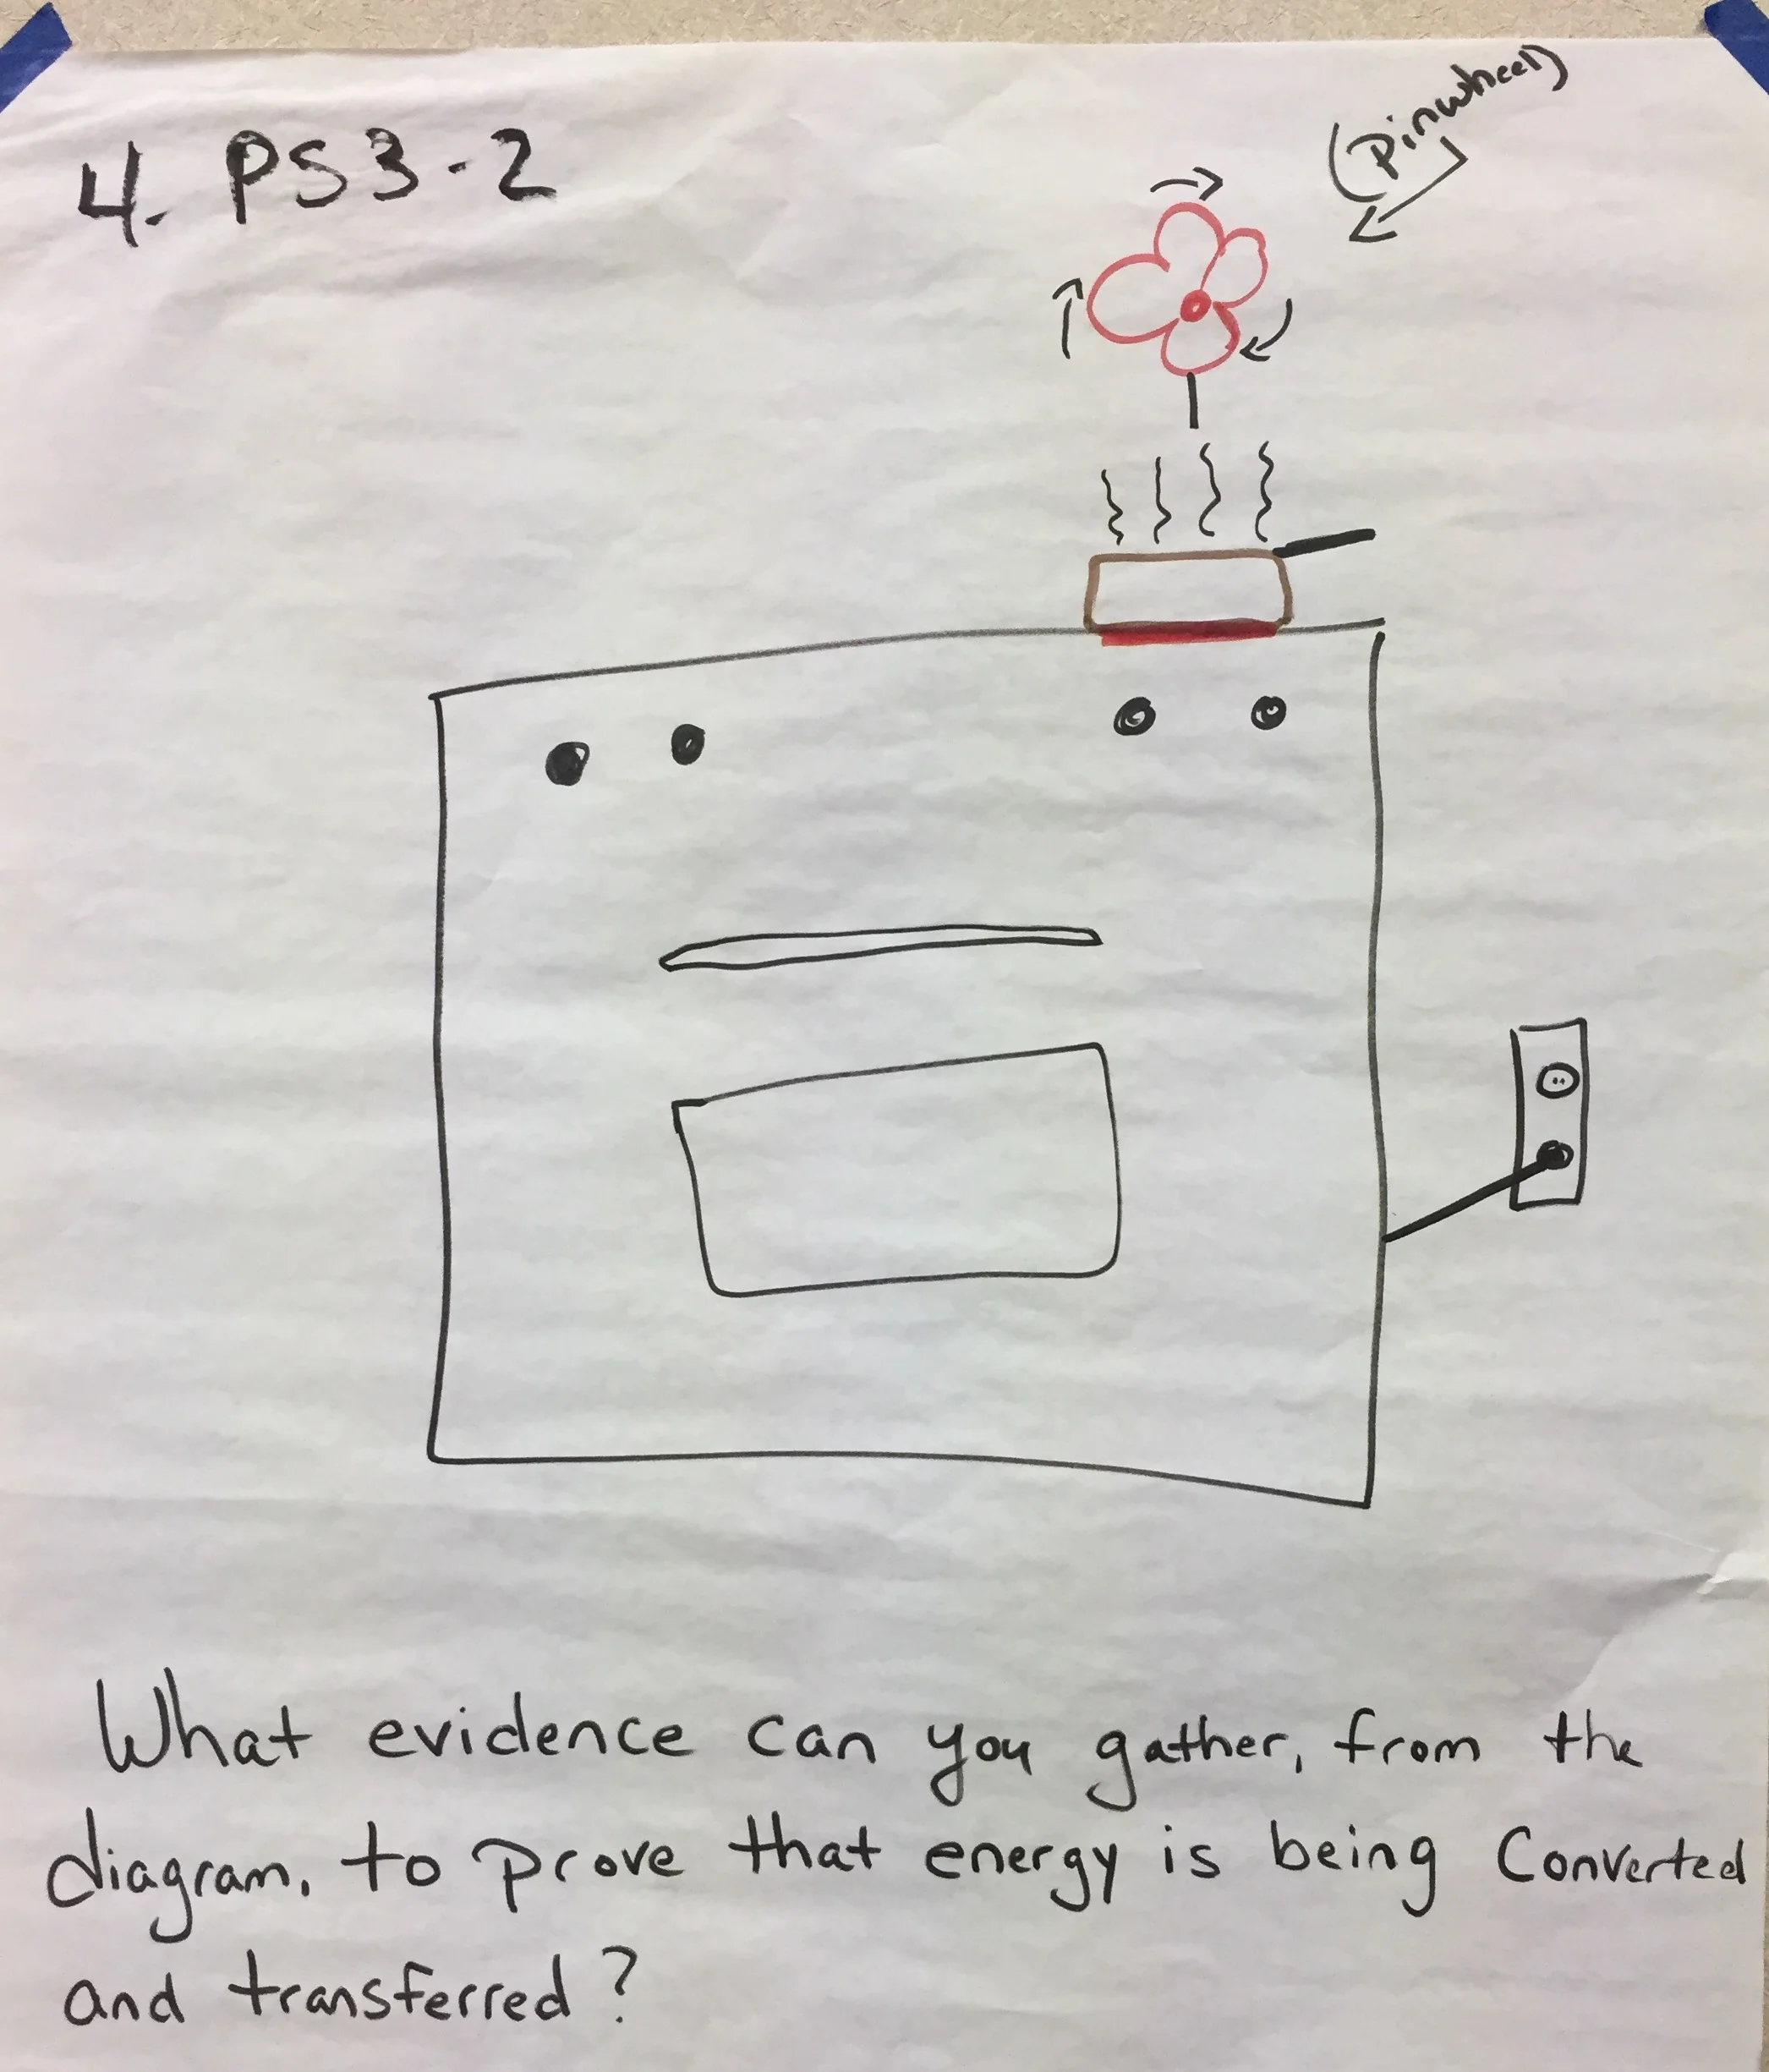 4. PS3-2
(Pinwheel)
What evidence can you gather, from the
diagram, to prove that energy is being Converted
and transferred?